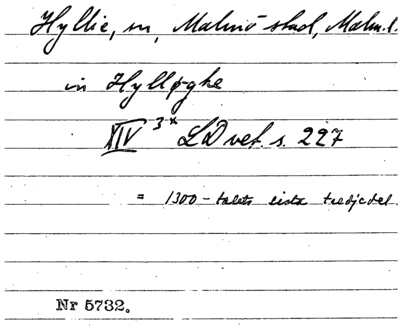 Hyllie, sn, Malmö stad, Malm. l.
in Hylløghe
XIV 3x LDvet. s. 227
= 1300-talets sista tredjedel.
Nr 5732.